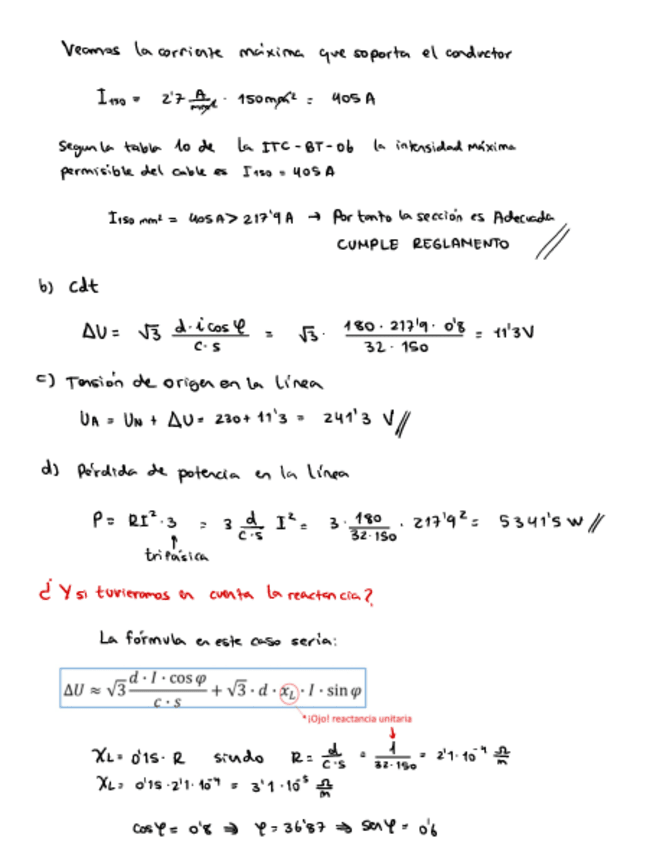 Veamos la corriente máxima que soporta el conductor
I₁₅₀ = 2'7 A/mm² · 150mm² = 405 A
Segun la tabla 10 de la ITC-BT-06 la intensidad máxima
permisible del cable es I₁₅₀ = 405 A
I₁₅₀ mm² = 405A > 217'9 A → Por tanto la sección es Adecuada
CUMPLE REGLAMENTO //
b) cdt
ΔU = √3 (d·i cos φ)/(c·s) = √3 · (180 · 217'9 · 0'8)/(32 · 150) = 11'3V
c) Tensión de origen en la línea
U_A = U_N + ΔU = 230 + 11'3 = 241'3 V //
d) Pérdida de potencia en la línea
P = RI²·3 = 3 d/(c·s) I² = 3 · 180/(32·150) · 217'9² = 5341'5 W //
↑
trifásica
¿Y si tuvieramos en cuenta la reactancia?
La fórmula en este caso sería:
ΔU ≈ √3 (d · I · cos φ)/(c · s) + √3 · d · x_L · I · sin φ
*¡Ojo! reactancia unitaria
X_L = 0'15 · R siendo R = d/(c·s) = 1/(32·150) = 2'1·10⁻⁴ Ω/m
X_L = 0'15 · 2'1 · 10⁻⁴ = 3'1 · 10⁻⁵ Ω/m
cos φ = 0'8 ⇒ φ = 36'87 ⇒ sen φ = 0'6